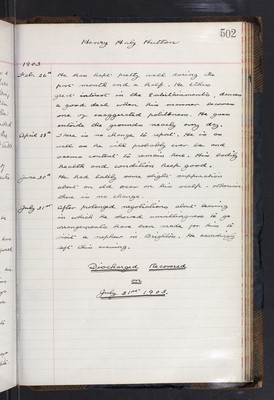 502
Henry
Hulton
1903
Feby. 26th He has kept pretty well during the
past month and a half. He takes
great interest in the Entertainments, dances
a good deal when his manner becomes
one of exaggerated politeness. He goes
outside the grounds nearly every day.
April 28th There is no change to report. He is as
well as he will probably ever be and
seems content to remain here. His bodily
health and condition keep good.
June 30th He had lately some slight suppuration
about an old scar on his scalp. Otherwise
there is no change.
July 31st After prolonged negotiations about leaving
in which he showed unwillingness to go
arrangements have been made for him to
visit a nephew in Brighton. He accordingly
left this evening.
Discharged Recovered
on
July 31st 1903.